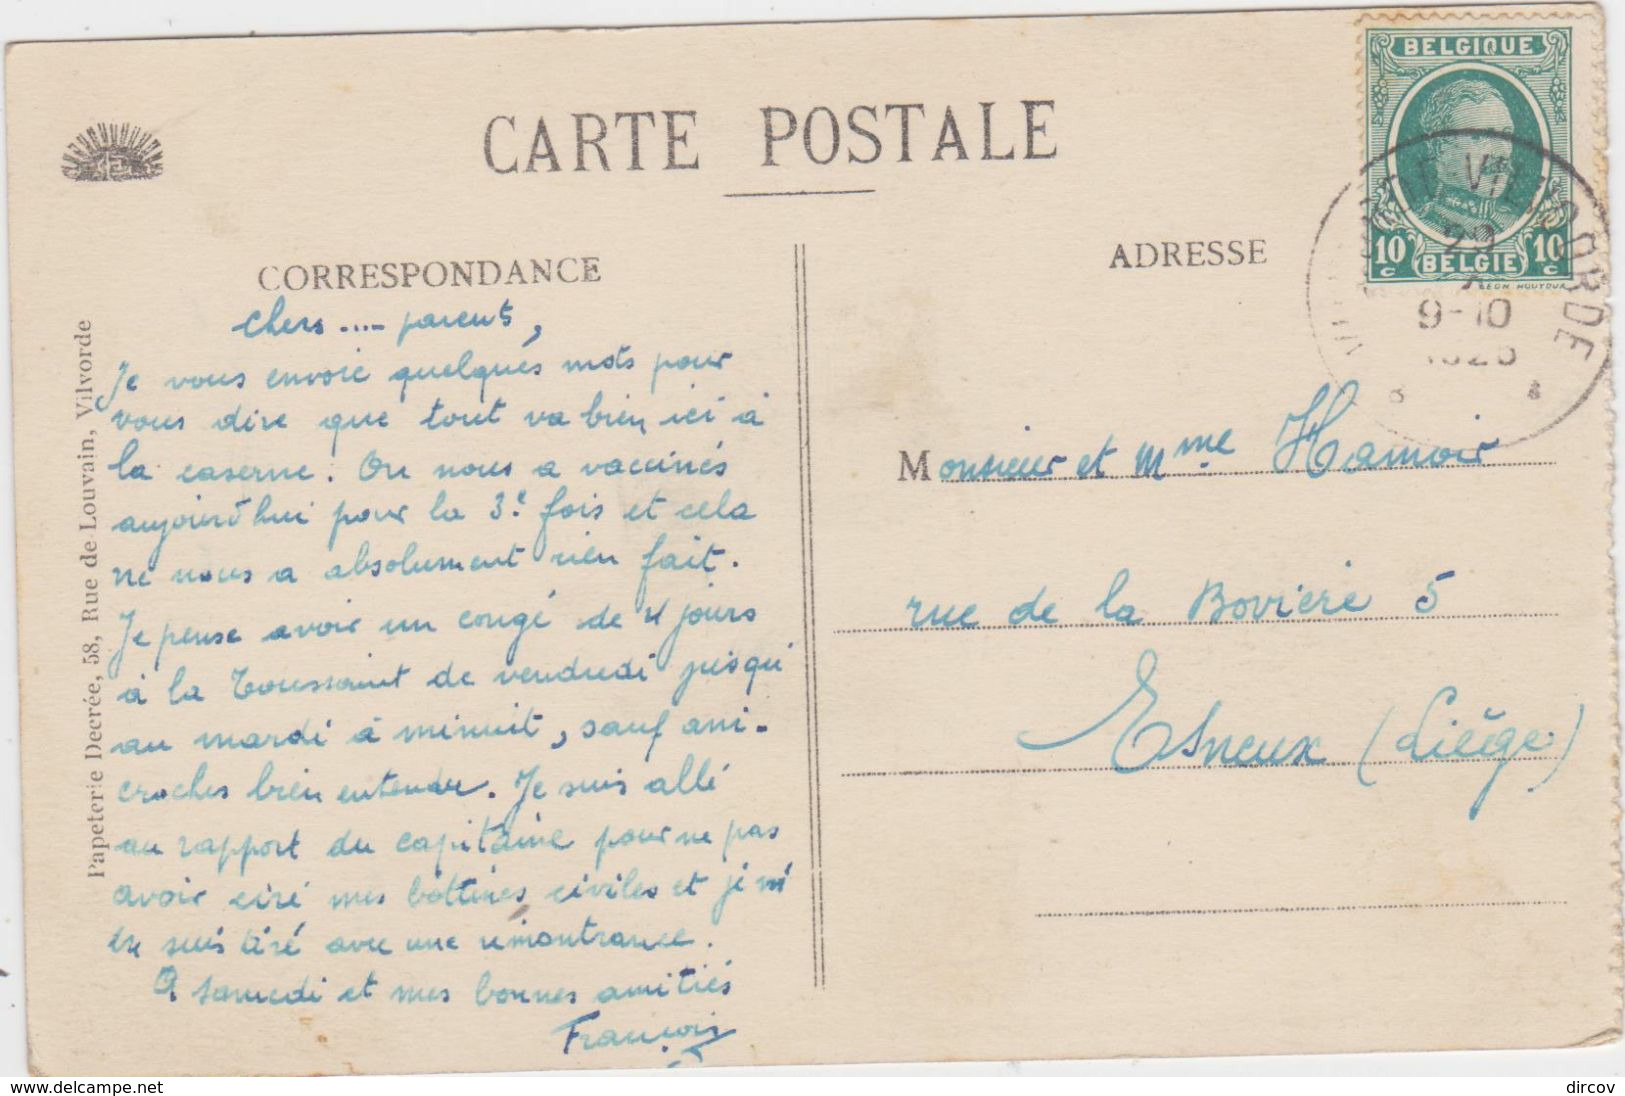 CARTE POSTALE
CORRESPONDANCE
Chers .... parents,
Je vous envoie quelques mots pour
vous dire que tout va bien ici à
la caserne. On nous a vaccinés
aujourd'hui pour la 3e fois et cela
ne nous a absolument rien fait.
Je pense avoir un congé de 4 jours
à la Toussaint de vendredi jusqu'
au mardi à minuit, sauf ani-
croches bien entendu. Je suis allé
au rapport du capitaine pour ne pas
avoir ciré mes bottines civiles et je m'
en suis tiré avec une remontrance.
A samedi et mes bonnes amitiés
François
Papeterie Decrée, 58, Rue de Louvain, Vilvorde
ADRESSE
Monsieur et Mme Hamoir
rue de la Bovière 5
Esneux (Liége)
BELGIQUE
10 c BELGIE 10 c
VILVORDE
29
9-10
delcampe.net
dircov